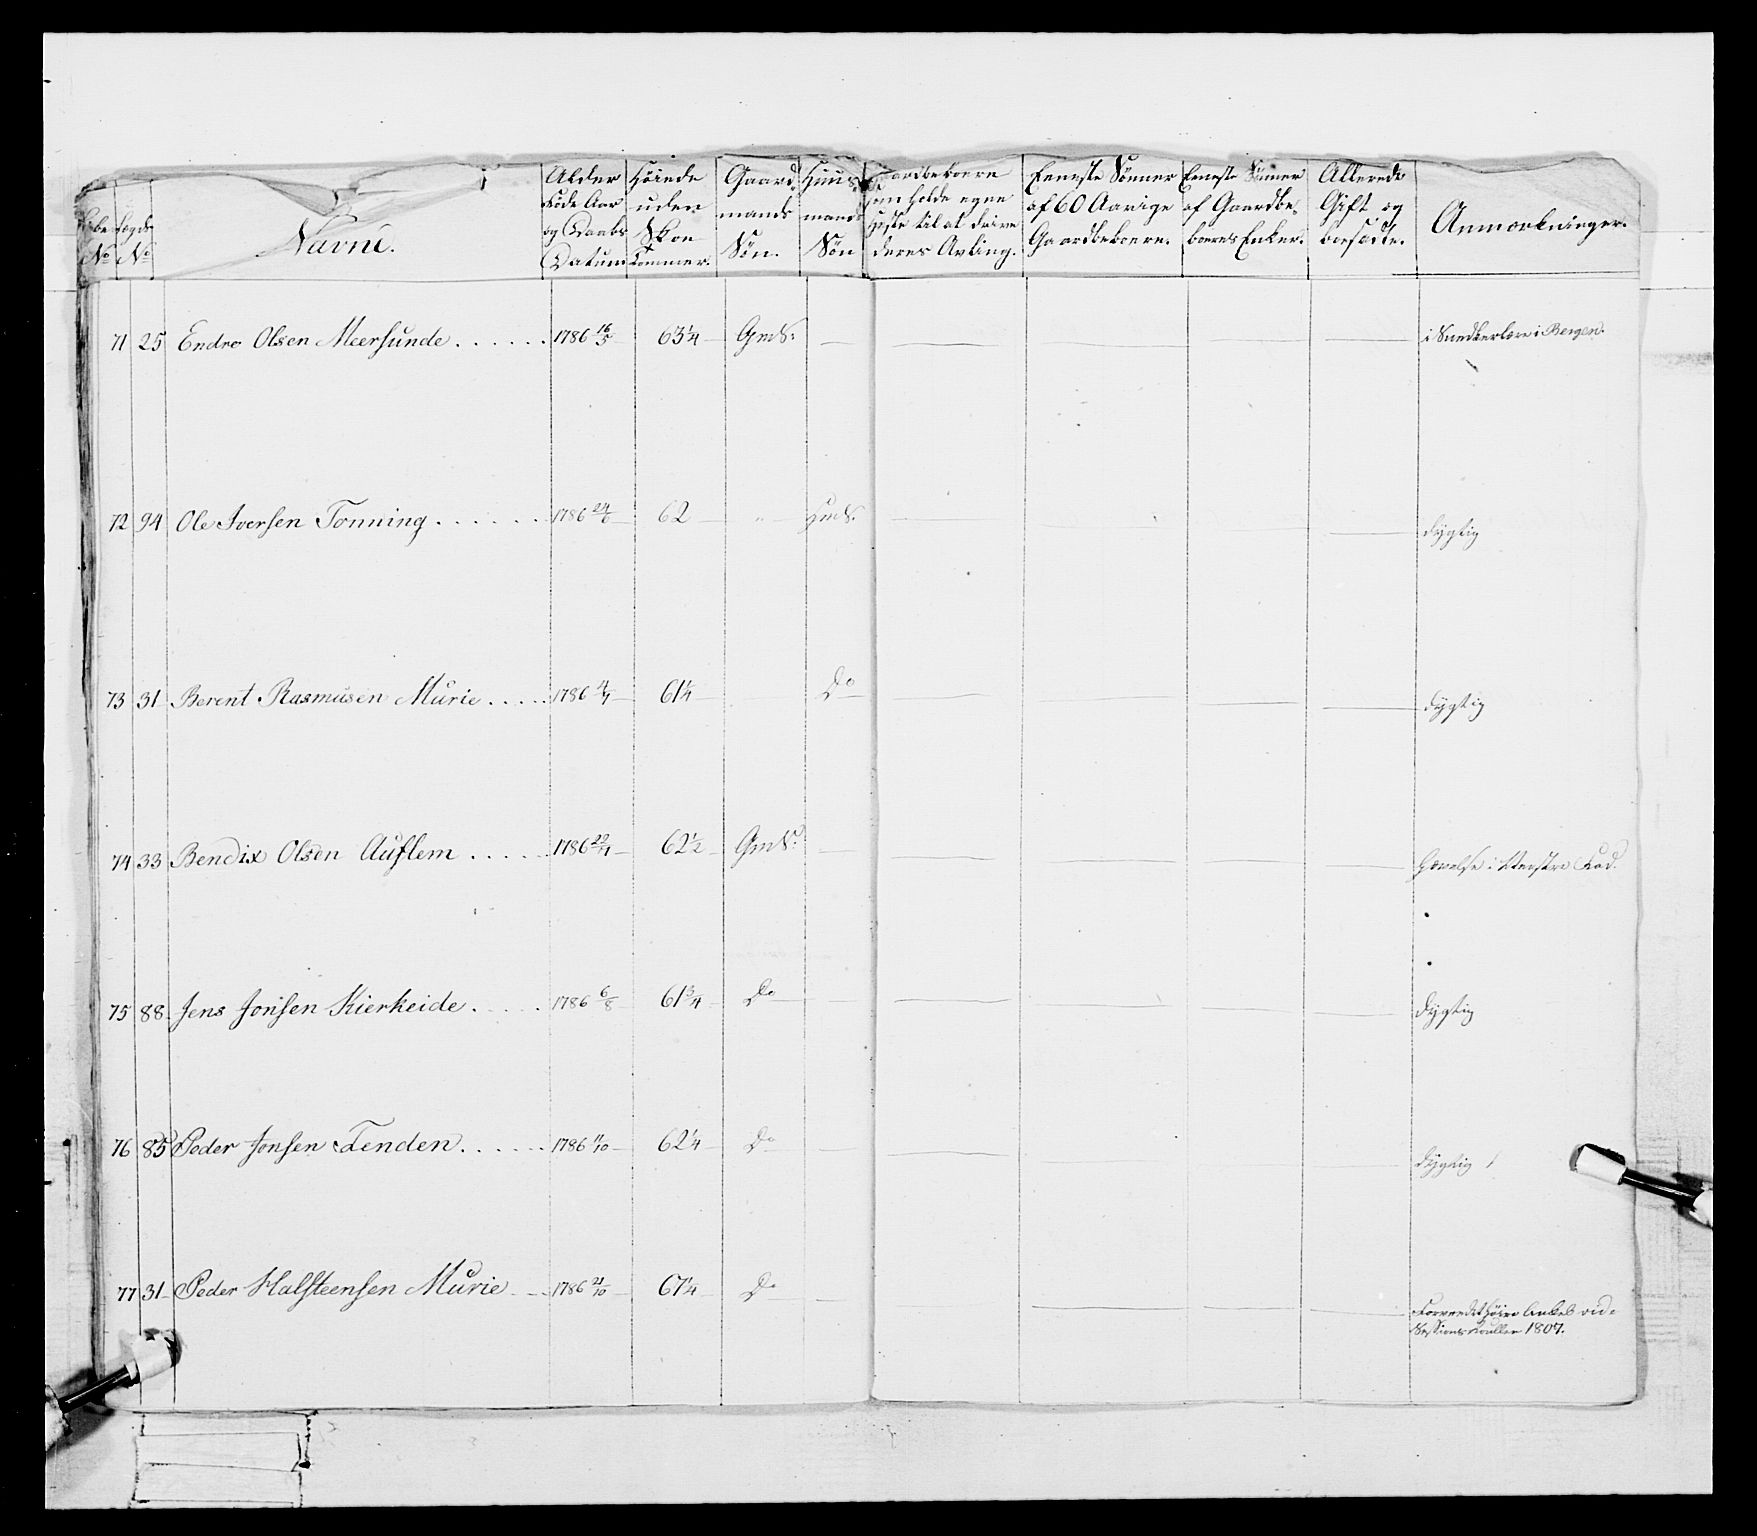 Løbe No
Lægds No
Navne.
Alder Føde Aar og Daabs Datum
Høiede uden Skoe Tommer.
Gaard mands Søn.
Huus mands Søn
Gaardbeboere som holde egne Heste til at drive deres Avling.
Eeneste Sønner af 60 Aarige Gaardbeboere.
Eeneste Sønner af Gaardbeboeres Enker.
Allerede Gift og boesadte.
Anmærkninger.
71 25 Endre Olsen Meersunde . . . . . . 1786 16/5 63 1/4 GmdS: i Snedkerlære i Bergen.
72 94 Ole Iversen Tonning . . . . . . 1786 24/6 62 " HmdS. dygtig
73 31 Berent Rasmusen Murie . . . . . 1786 4/7 61 1/4 Do dygtig
74 33 Bendix Olsen Auflem . . . . . 1786 22/7 62 1/2 GmdS: i venstre Fod.
75 88 Jens Jonsen Kierheide . . . . . 1786 6/8 61 3/4 Do dygtig
76 85 Peder Jonsen Tenden . . . . . . 1786 11/10 62 1/4 Do dygtig
77 31 Peder Halsteensen Murie 1786 21/10 67 1/4 Do høire Ankel vide
Sessions Roullen 1807.